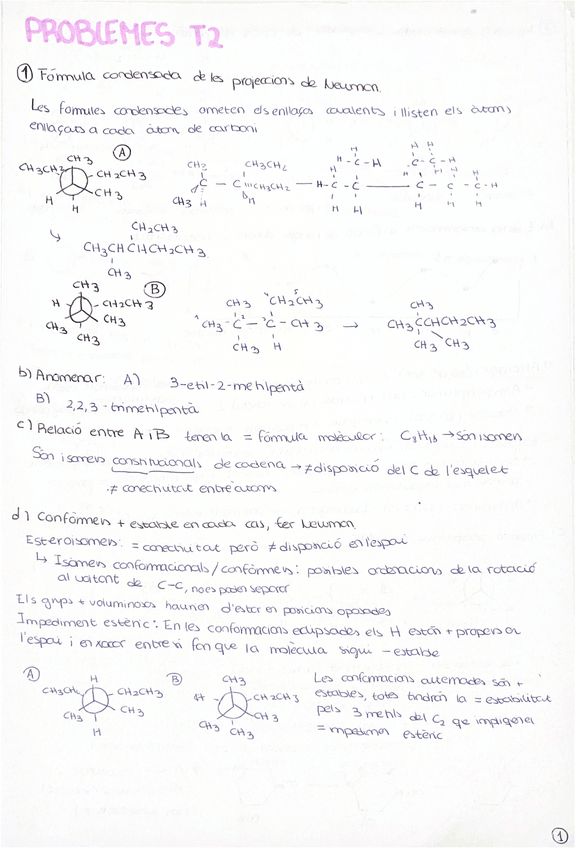 PROBLEMES T2
① Fórmula condensada de les projeccions de Newman.
Les formules condensades ometen els enllaços covalents i llisten els àtoms
enllaçats a cada àtom de carboni
A
CH3
CH3CH2 CH2CH3
CH3
H H
CH3CH2
CH2CH3
CH3 H
H
CH2CH3
CH3CHCHCH2CH3
CH3
B
CH3
H CH2CH3
CH3
CH3 CH3
CH3 CH2CH3
CH3-C-C-CH3 →
CH3 H
CH3
CH3CCHCH2CH3
CH3 CH3
b) Anomenar: A) 3-etil-2-metilpentà
B) 2,2,3-trimetilpentà
c) Relació entre A i B tenen la = fórmula molecular: C8H18 → són isòmers
Són isomers constitucionals de cadena → ≠ disposició del C de l'esquelet
≠ conectivitat entre àtoms
d) Confòrmer + estable en cada cas, fer Newman
Esteroisomers: = conectivitat però ≠ disposició en l'espai
↳ Isòmers conformacionals / confòrmers: posibles ordenacions de la rotació
al voltant de C-C, no es poden separar
Els grups + voluminosos haurien d'estar en posicions oposades
Impediment estèric: En les conformacions eclipsades els H estàn + propers en
l'espai i en xocar entre si fan que la molècula sigui - estable
A
H
CH3CH2 CH2CH3
CH3 CH3
H
B
CH3
H CH2CH3
CH3
CH3 CH3
Les conformacions alternades són +
estables, totes tindràn la = estabilitat
pels 3 metils del C2 que
= estèric
①